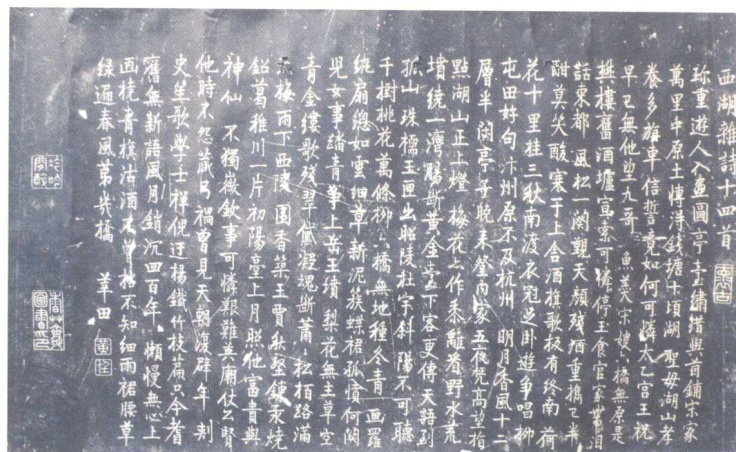 西湖雜詩十四首
珎重遊人入畫圖亭臺繡錯與茵鋪宋家
萬里中原土博得錢塘十頃湖 聖母湖山孝
養多 車信誓竟如何可憐太乙宮王祝
早已無他望九哥 魚羹宋嫂六橋無原是
樊樓舊酒壚宣索可憐停玉食官家帶淚
話東都 風松一闋覲天顏殘酒重攜乙半
酣莫笑酸寒于上舍酒樵歌板有終南 荷
花十里桂三秋南渡衣冠足卧遊爭唱柳
屯田好句汴州原不及杭州 明月春風十二
層半閑亭子晚來登內家五夜凭高望指
點湖山正上燈 梅花六作黍離看野水荒
墳繞一灣腸斷黃金臺下客更傳天語到
孤山 珠襦玉匣出昭陵杜宇斜陽不可聽
千樹桃花萬條柳六橋無地種冬青 画羅
紈扇總如雲細草新泥族蝶裙孤憤何關
兒女事踏青爭上岳王墳 梨花無主草空
青金縷歌殘翠黛凝魂斷蕭蕭松柏路滿
天梅雨下西陵 園香築主賈秋壑鍊汞燒
鉛葛稚川一片初陽臺上月照他富貴與
神仙 不獨嶔 事可憐艱難無廟仗公賢
他時不怨藏弓禍曾見天朝復辟年 刺
史笙歌學士禪倪迂楊鐵竹枝篇只今耆
舊無新語風月銷沉四百年 懶慢無心上
画橈青旗沽酒 不知細雨裙腰草
緑遍春風第幾橋 莘田